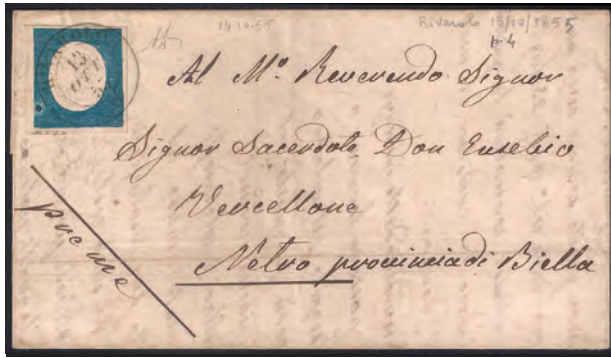 14-10-55
Rivarolo 13/10/1855
p. 4
13
OTT
Al M.º Reverendo Signor
Signor Sacerdote Don Eusebio
Vercellone
Netro provincia di Biella
preme